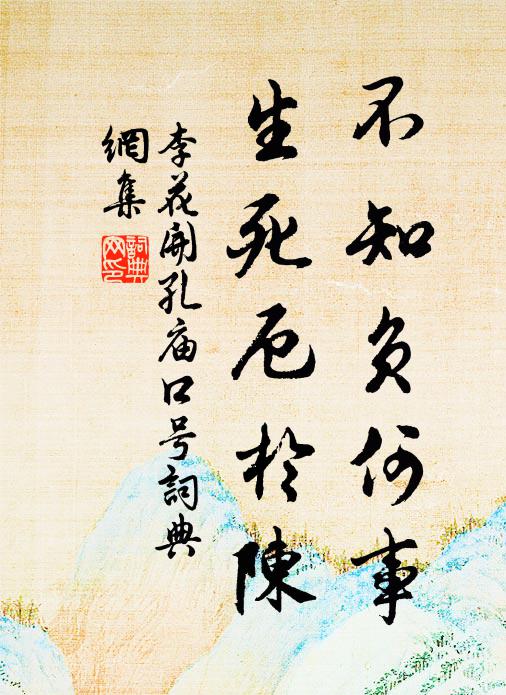 不知负何事
生死厄於陳
李花開孔庙口号詞典
網集
詞典
网印